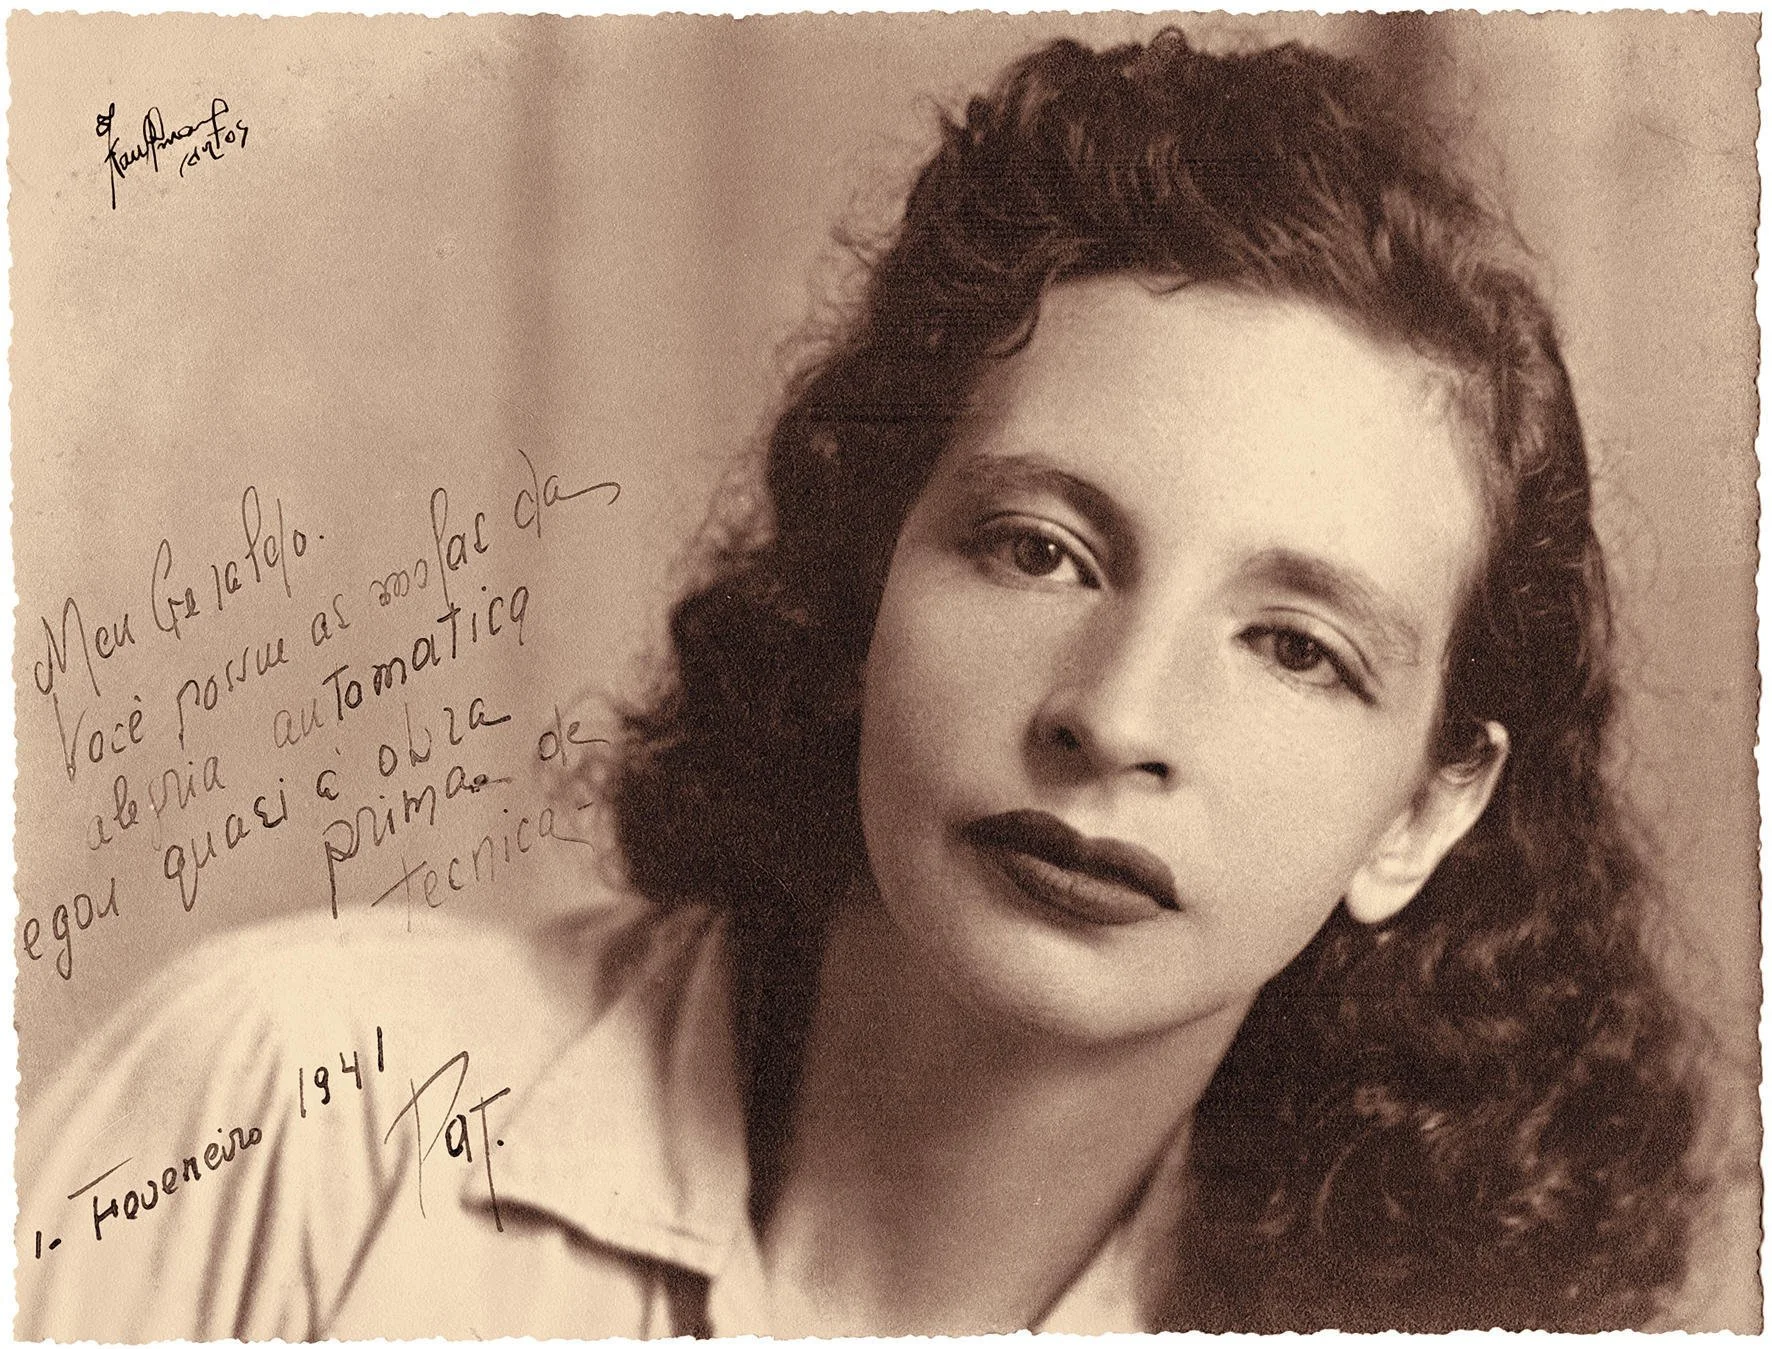 Kauffmann
Santos
Meu Geraldo.
Você possue as molas da
alegria automatica
e quasi é obra
prima de
tecnica-
1- Fevereiro 1941
Pat.